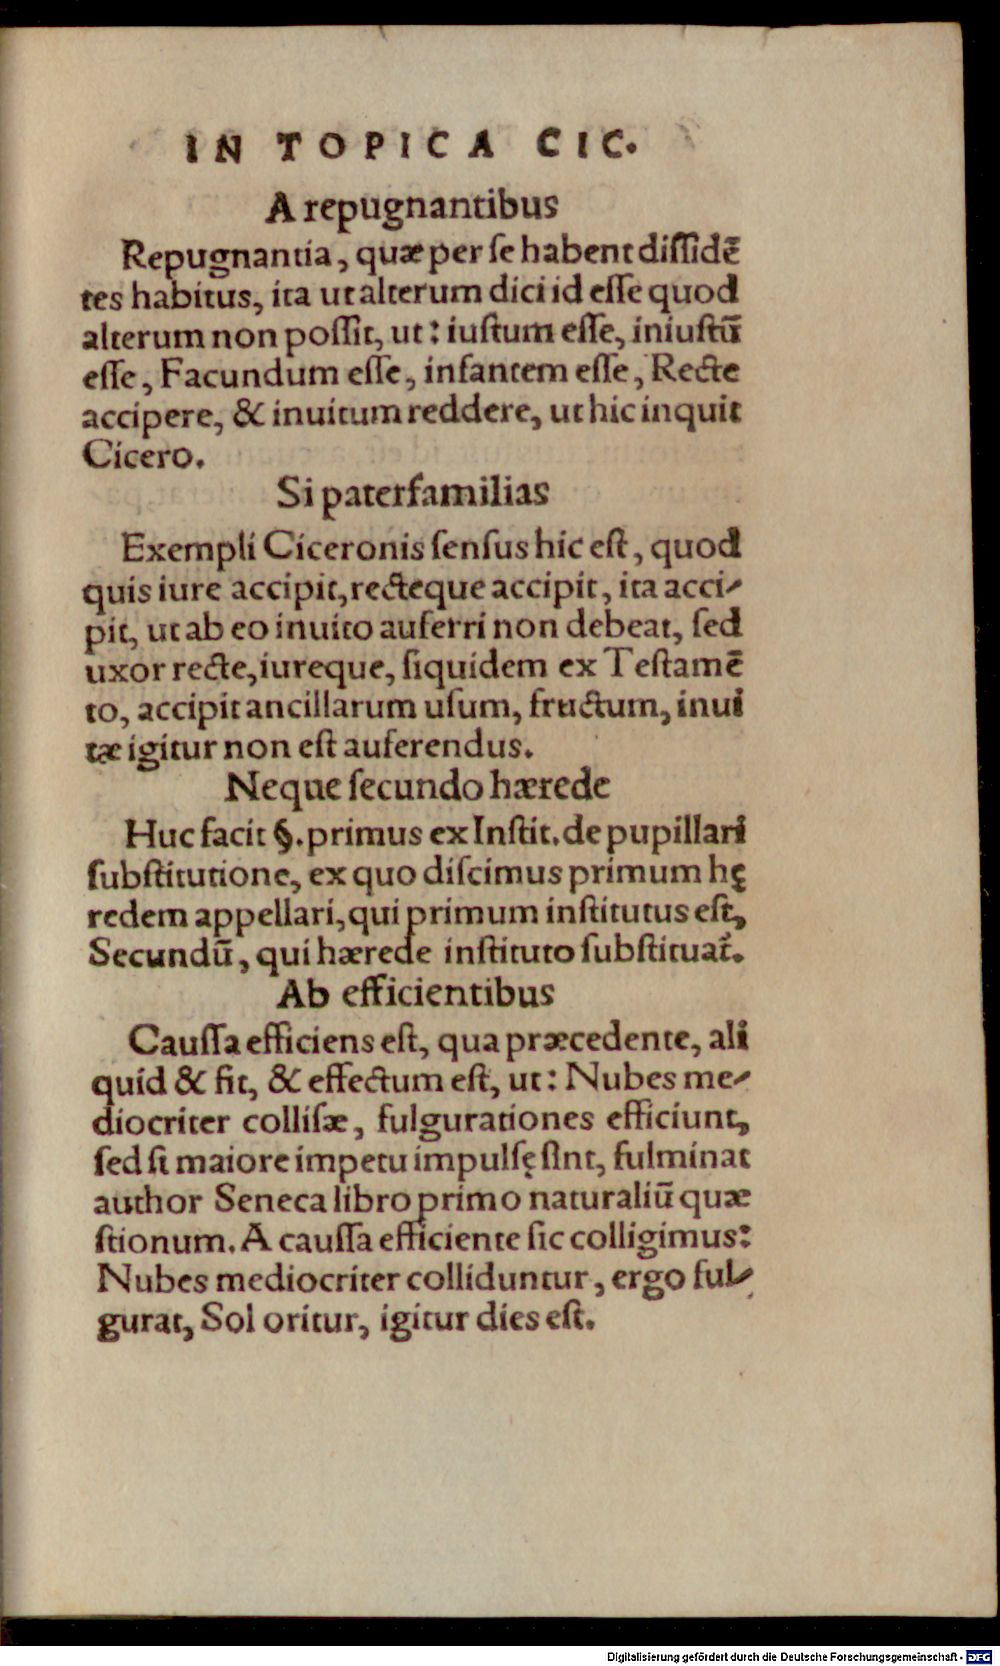 IN TOPICA CIC.
A repugnantibus
Repugnantia, quæ per se habent dissidē
tes habitus, ita ut alterum dici id esse quod
alterum non possit, ut: iustum esse, iniustū
esse, Facundum esse, infantem esse, Recte
accipere, & inuitum reddere, ut hic inquit
Cicero.
Si paterfamilias
Exempli Ciceronis sensus hic est, quod
quis iure accipit, recteque accipit, ita acci-
pit, ut ab eo inuito auferri non debeat, sed
uxor recte, iureque, siquidem ex Testamē
to, accipit ancillarum usum, fructum, inui
tæ igitur non est auferendus.
Neque secundo hærede
Huc facit §. primus ex Instit. de pupillari
substitutione, ex quo discimus primum hę
redem appellari, qui primum institutus est,
Secundū, qui hærede instituto substituat᷑.
Ab efficientibus
Caussa efficiens est, qua præcedente, ali
quid & fit, & effectum est, ut: Nubes me-
diocriter collisæ, fulgurationes efficiunt,
sed si maiore impetu impulsę sint, fulminat
author Seneca libro primo naturaliū quæ
stionum. A caussa efficiente sic colligimus:
Nubes mediocriter colliduntur, ergo ful-
gurat, Sol oritur, igitur dies est.
Digitalisierung gefördert durch die Deutsche Forschungsgemeinschaft - DFG